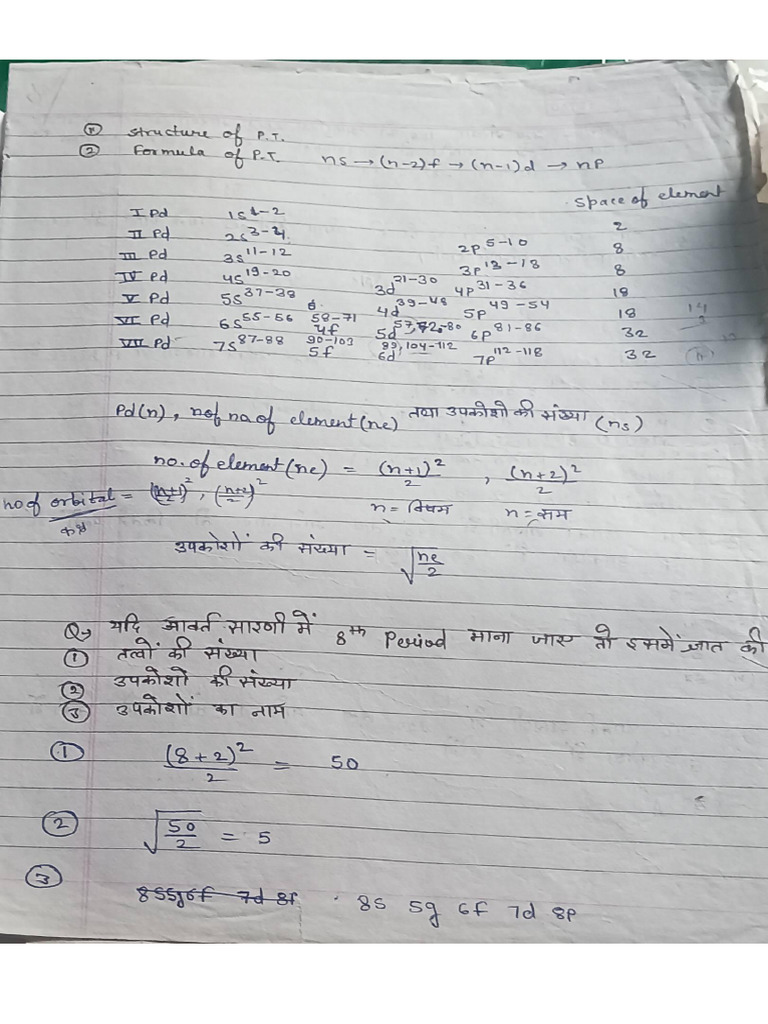 ① Structure of P.T.
② Formula of P.T. ns → (n-2)f → (n-1)d → np
Space of element
I Pd 1s¹⁻² 2
II Pd 2s³⁻⁴ 2p⁵⁻¹⁰ 8
III Pd 3s¹¹⁻¹² 3p¹³⁻¹⁸ 8
IV Pd 4s¹⁹⁻²⁰ 3d²¹⁻³⁰ 4p³¹⁻³⁶ 18
V Pd 5s³⁷⁻³⁸ 4d³⁹⁻⁴⁸ 5p⁴⁹⁻⁵⁴ 18
VI Pd 6s⁵⁵⁻⁵⁶ 4f⁵⁸⁻⁷¹ 5d⁵⁷,⁷²⁻⁸⁰ 6p⁸¹⁻⁸⁶ 32
VII Pd 7s⁸⁷⁻⁸⁸ 5f⁹⁰⁻¹⁰³ 6d⁸⁹,¹⁰⁴⁻¹¹² 7p¹¹²⁻¹¹⁸ 32
Pd(n), no of element (ne) तथा उपकोशो की संख्या (ns)
no. of element (ne) = (n+1)²/2 , (n+2)²/2
no of orbital = ((n+1)/2)², ((n+2)/2)² n = विषम n = सम
उपकोशों की संख्या = √(ne/2)
Q→ यदि आवर्त सारणी में 8th Period माना जाए तो इसमें ज्ञात की
① तत्वों की संख्या
② उपकोशों की संख्या
③ उपकोशों का नाम
① (8+2)²/2 = 50
② √(50/2) = 5
③ 8s 5g 6f 7d 8p